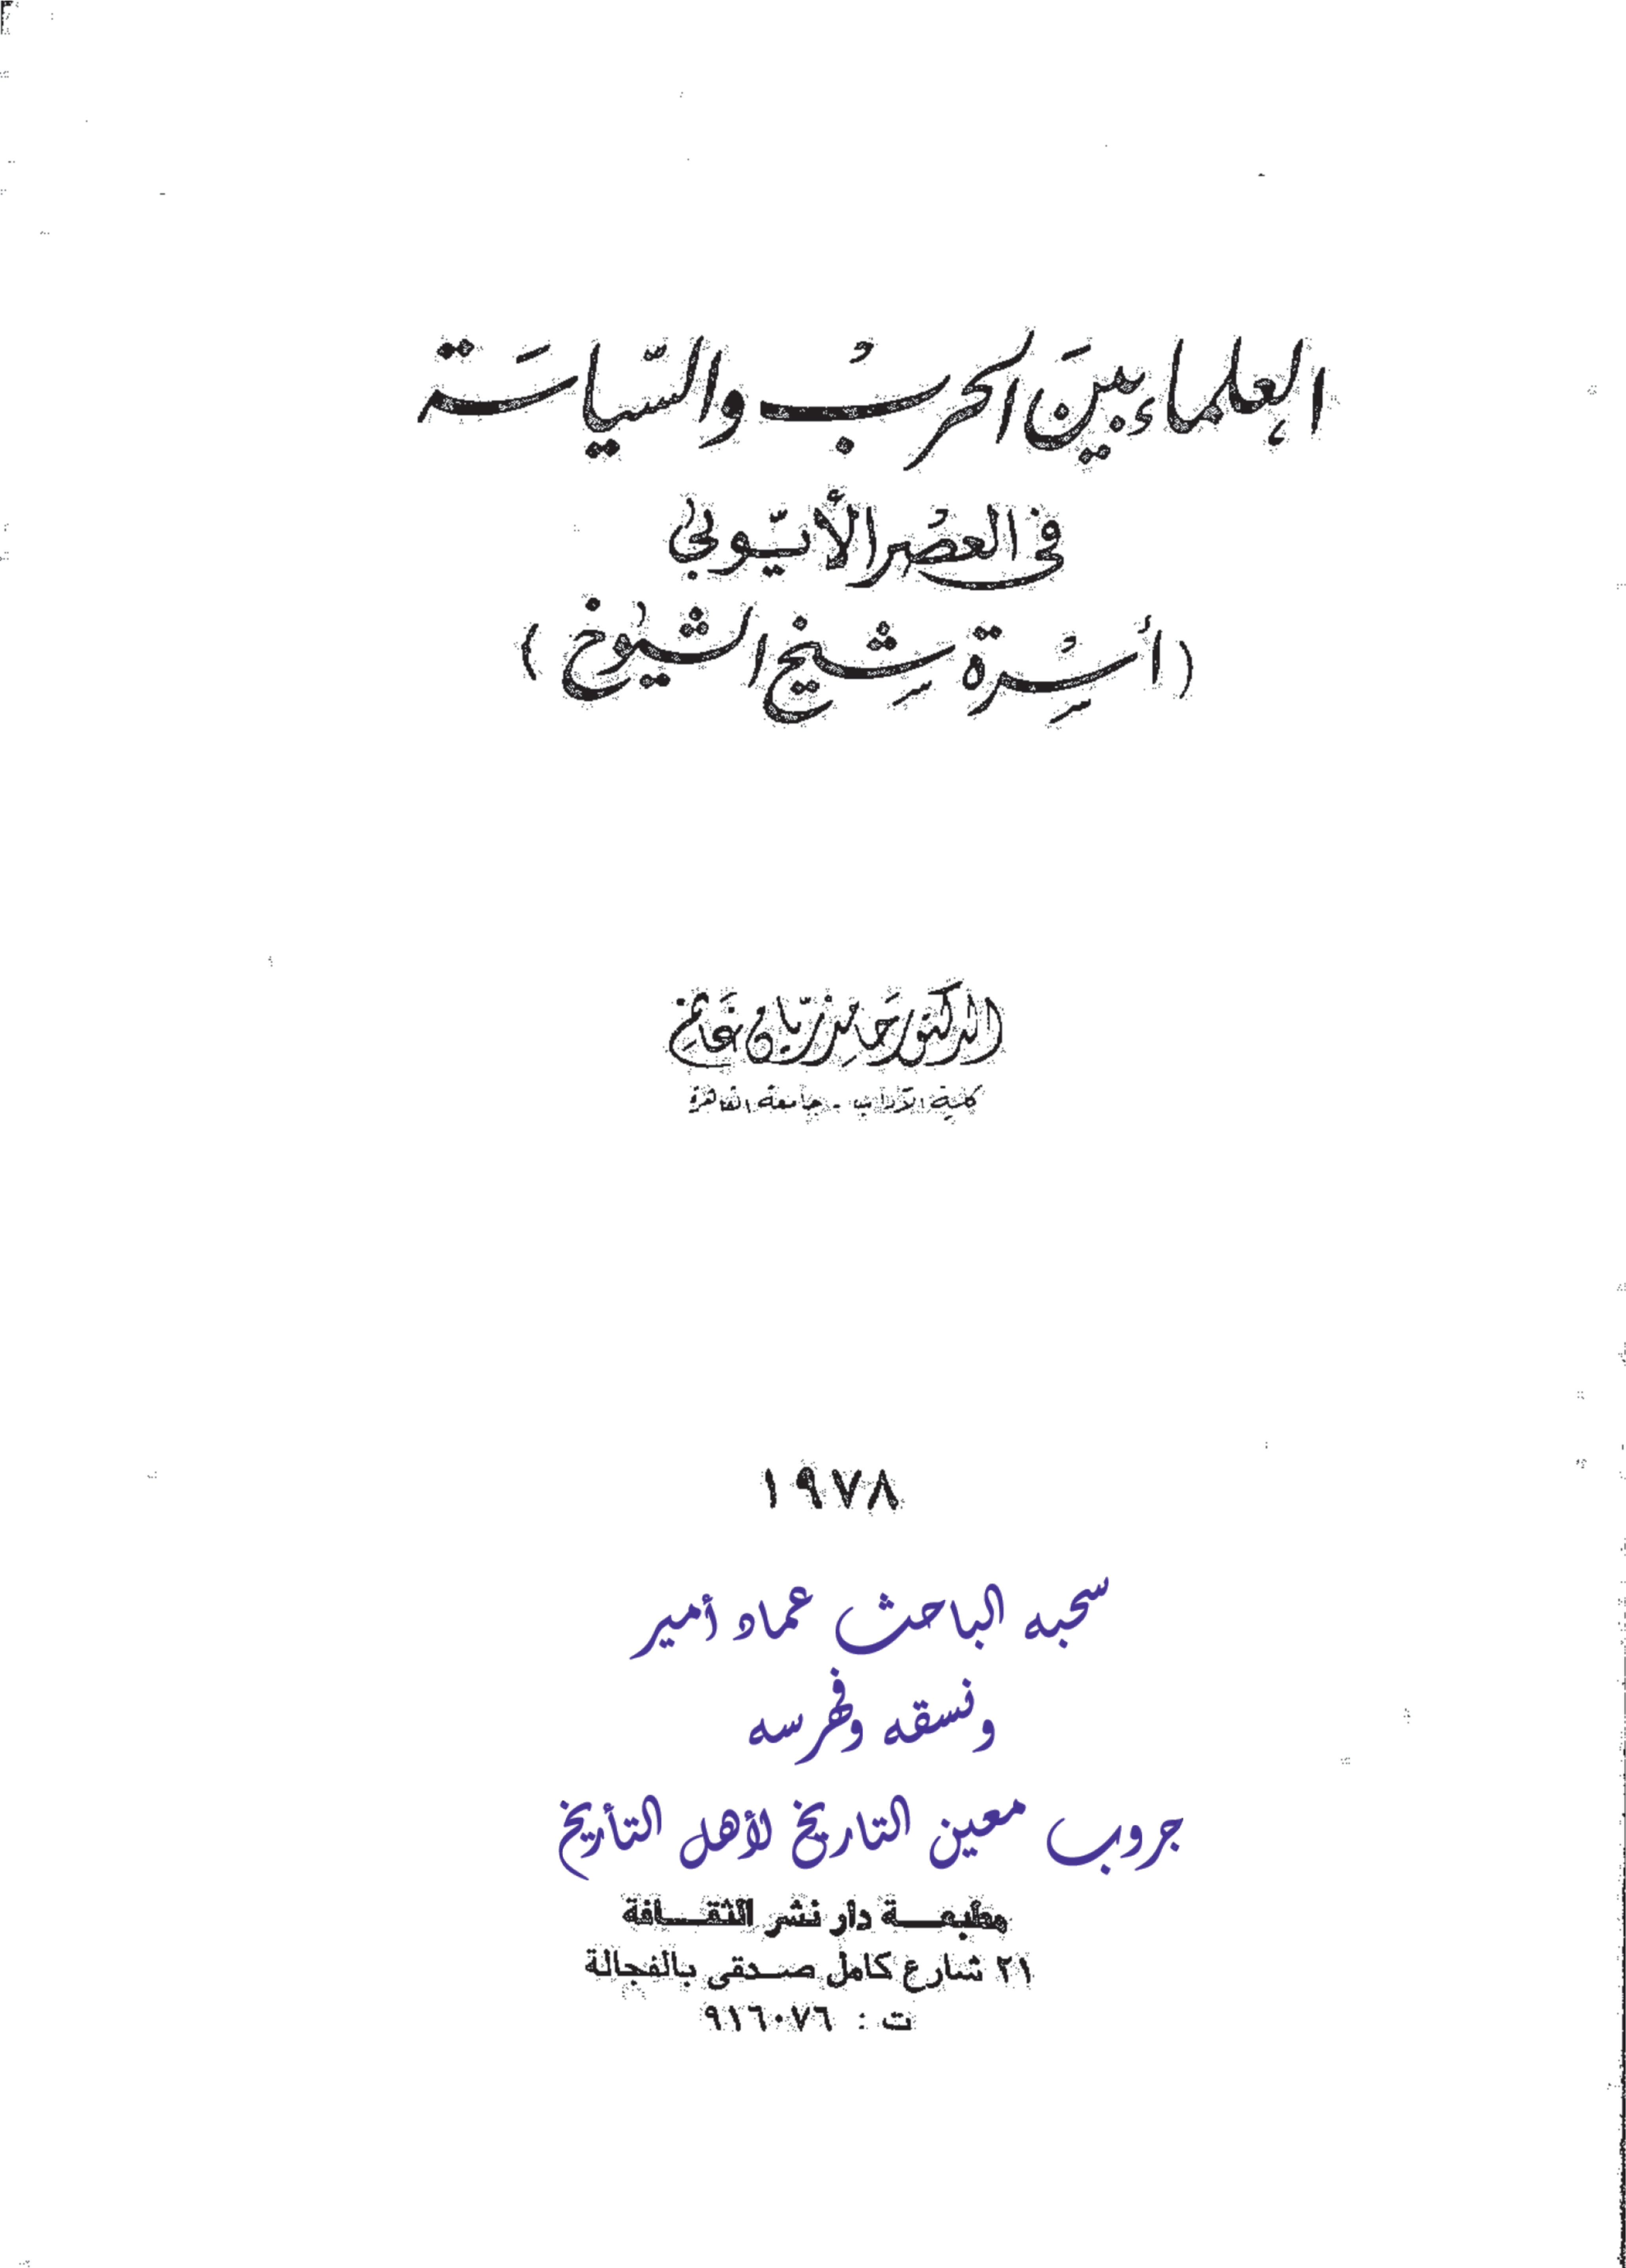 العلماء بين الحرب والسياسة
فى العصر الأيوبى
(أسرة شيخ الشيوخ)
الدكتور حامد زيان غانم
كلية الآداب - جامعة القاهرة
١٩٧٨
سحبه الباحث عماد أمير
ونسقه وفهرسه
جروب معين التاريخ لأهل التأريخ
مطبعة دار نشر الثقافة
٢١ شارع كامل صدقى بالفجالة
ت : ٩١٦٠٧٦